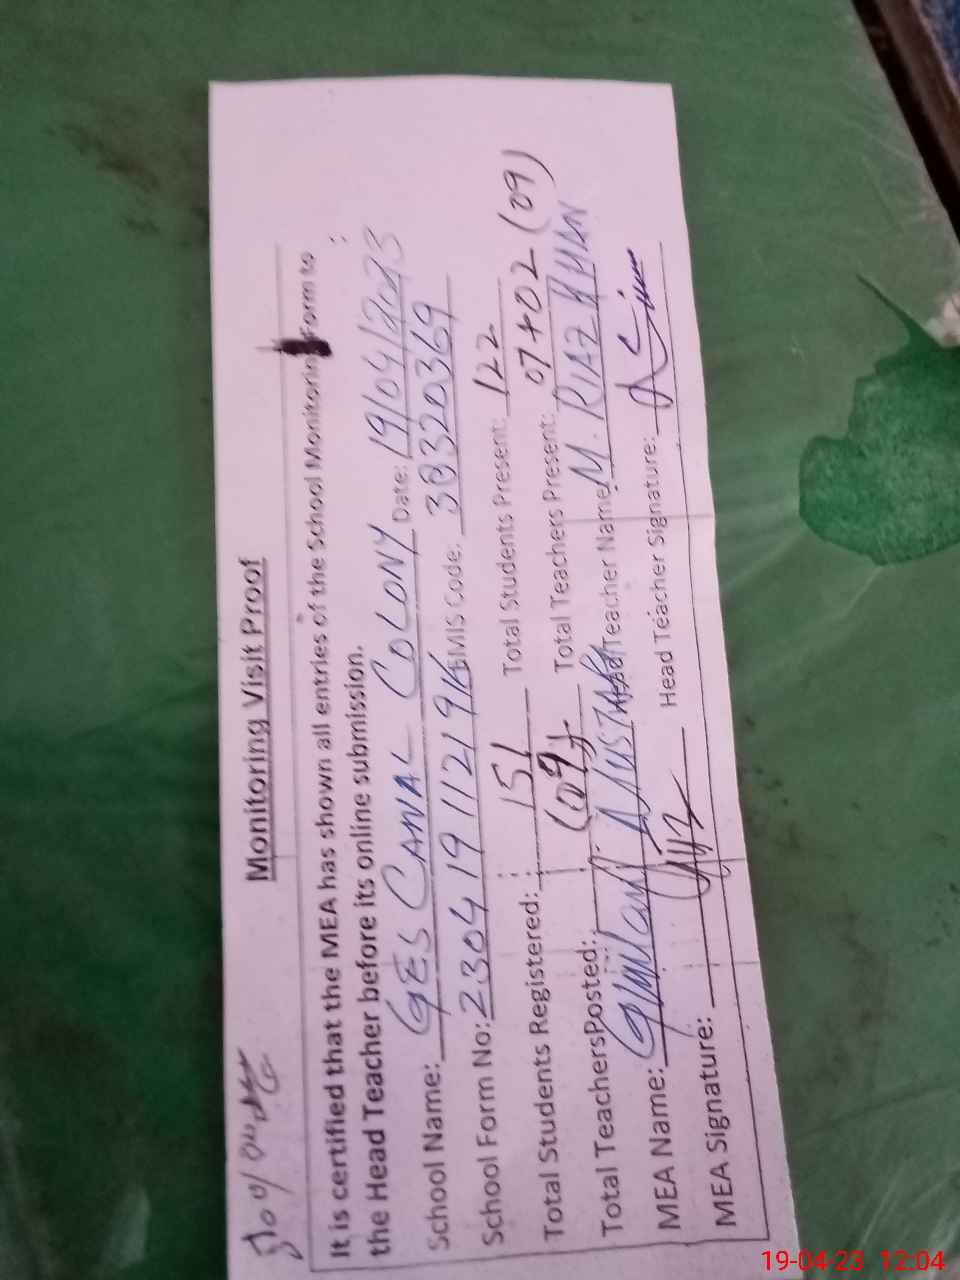 Monitoring Visit Proof
It is certified that the MEA has shown all entries of the School Monitoring Form to
the Head Teacher before its online submission.
School Name: GES CANAL COLONY Date: 19/04/2023
School Form No: 2304191121916 EMIS Code: 38320369
Total Students Registered: 151 Total Students Present: 122
Total TeachersPosted: (09) Total Teachers Present: 07+02 (09)
MEA Name: Head Teacher Name M. RIAZ KHAN
MEA Signature: Head Teacher Signature:
19-04-23 12:04